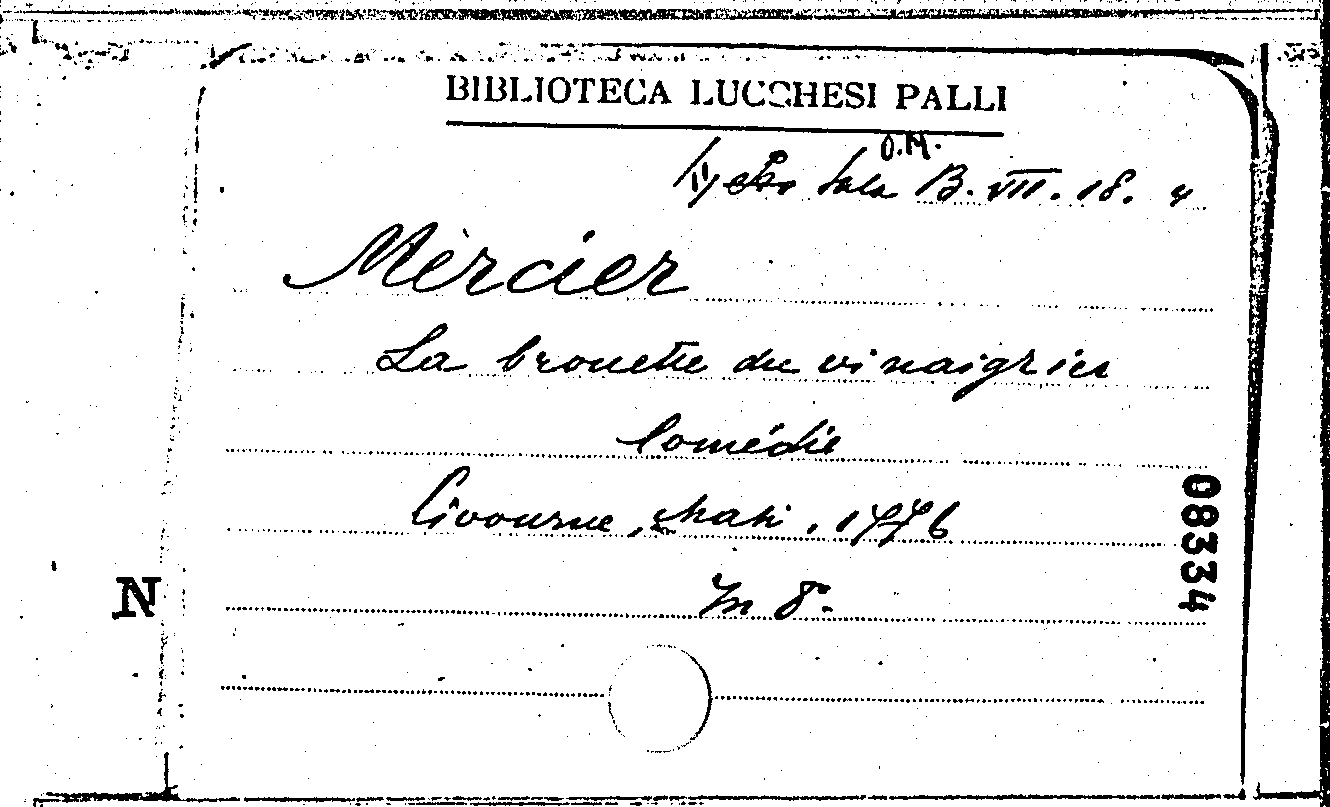 BIBLIOTECA LUCCHESI PALLI
O.M.
Sala B. VII. 18. 4
Mercier
La brouette du vinaigrier
Comédie
Livourne, 1776
In 8°.
08334
N